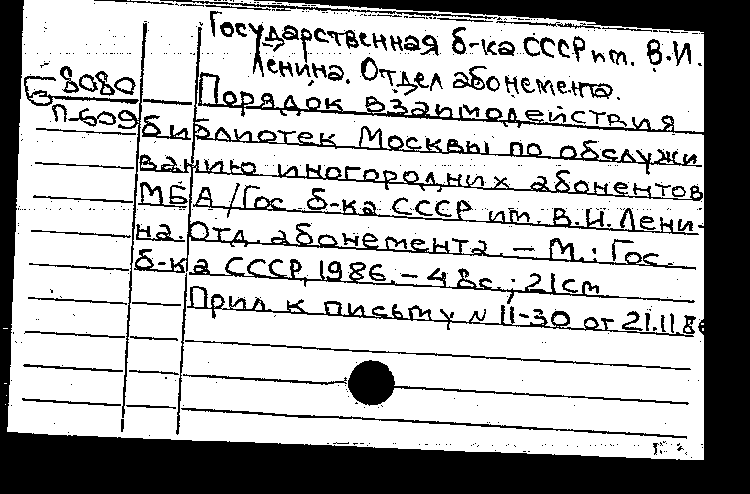 Государственная б-ка СССР им. В.И.
Ленина. Отдел абонемента.
Б 8080
П-609
Порядок взаимодействия
библиотек Москвы по обслужи
ванию иногородних абонентов
МБА / Гос. б-ка СССР им. В.И. Лени-
на. Отд. абонемента. – М.: Гос.
б-ка СССР, 1986. – 48с.; 21см
Прил. к письму N 11-30 от 21.11.86